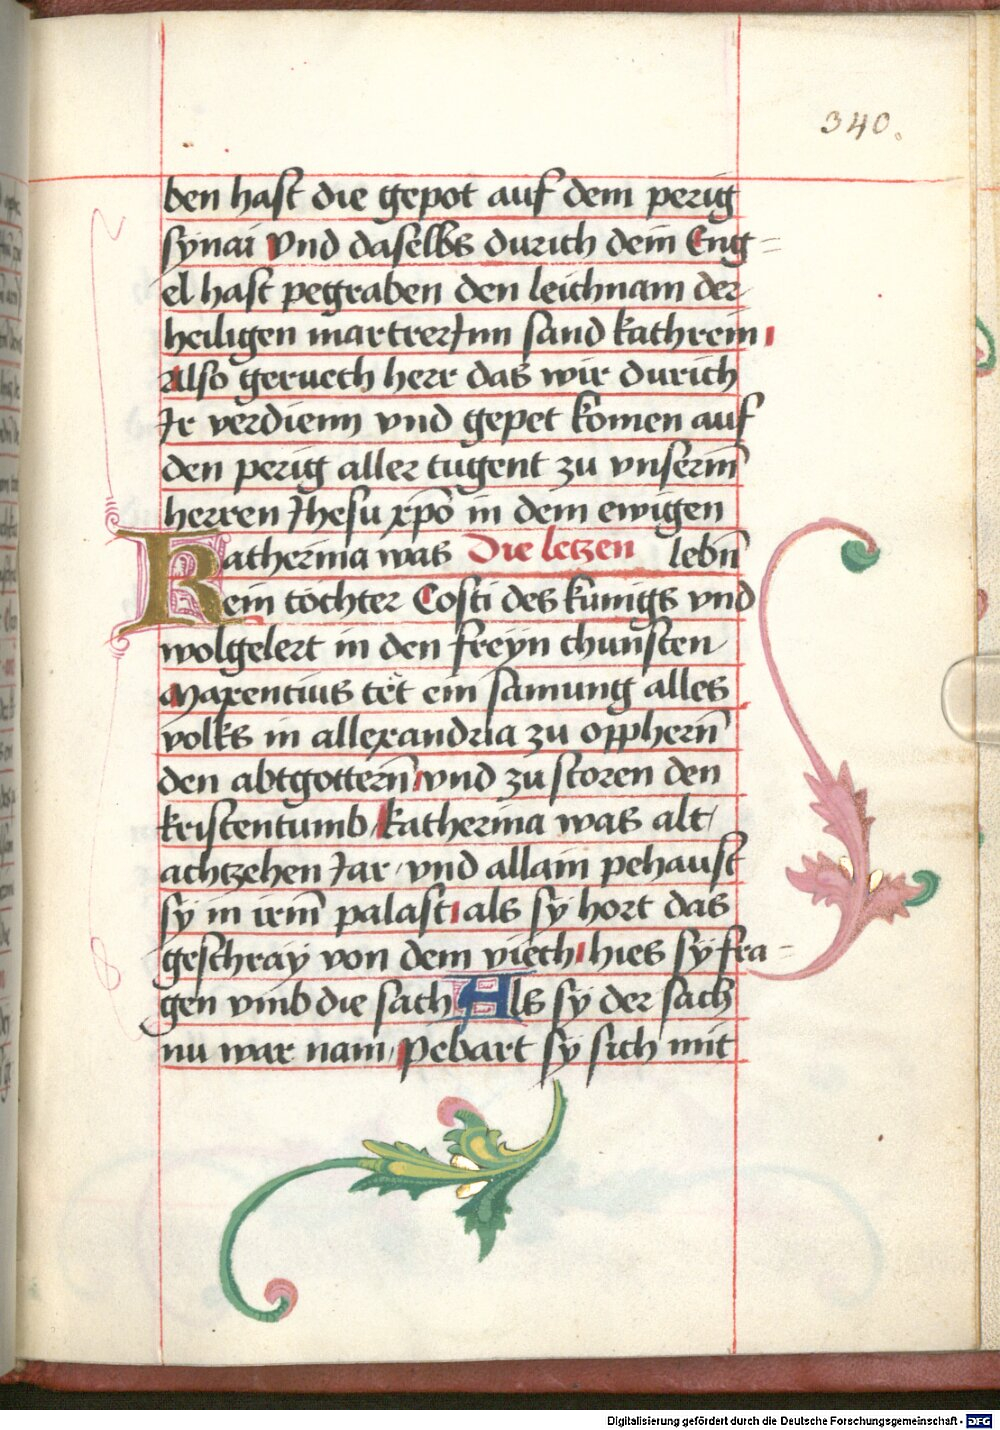 340.
ben hast die gepot auf dem perig
sÿnai Vnd daselbs durich dein Eng=
el hast pegraben den leichnam der
heiligen martrerJnn sand kathrein
Also geruech herr das wir durich
Jr verdienn vnd gepet komen auf
den perig aller tugent zu vnserm̄
herren Jhesu xp̄o in dem ewigen
Katherina was Die letzen lebn̄
ein tochter Costi des kunigs vnd
wolgelert in den freÿn chunsten
Maxentius tet ein samung alles
volks in allexandria zu opphern̄
den abtgottern̄ vnd zu storen den
kristentumb / katherina was alt /
achtzehen Jar / vnd allain pehaust
sÿ in irm̄ palast als sÿ hort das
geschraÿ von dem viech hies sÿ fra=
gen vmb die sach Als sÿ der sach
nu war nam / pebart sÿ sich mit
Digitalisierung gefördert durch die Deutsche Forschungsgemeinschaft - DFG